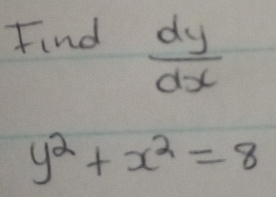 Find dy/dx
y² + x² = 8